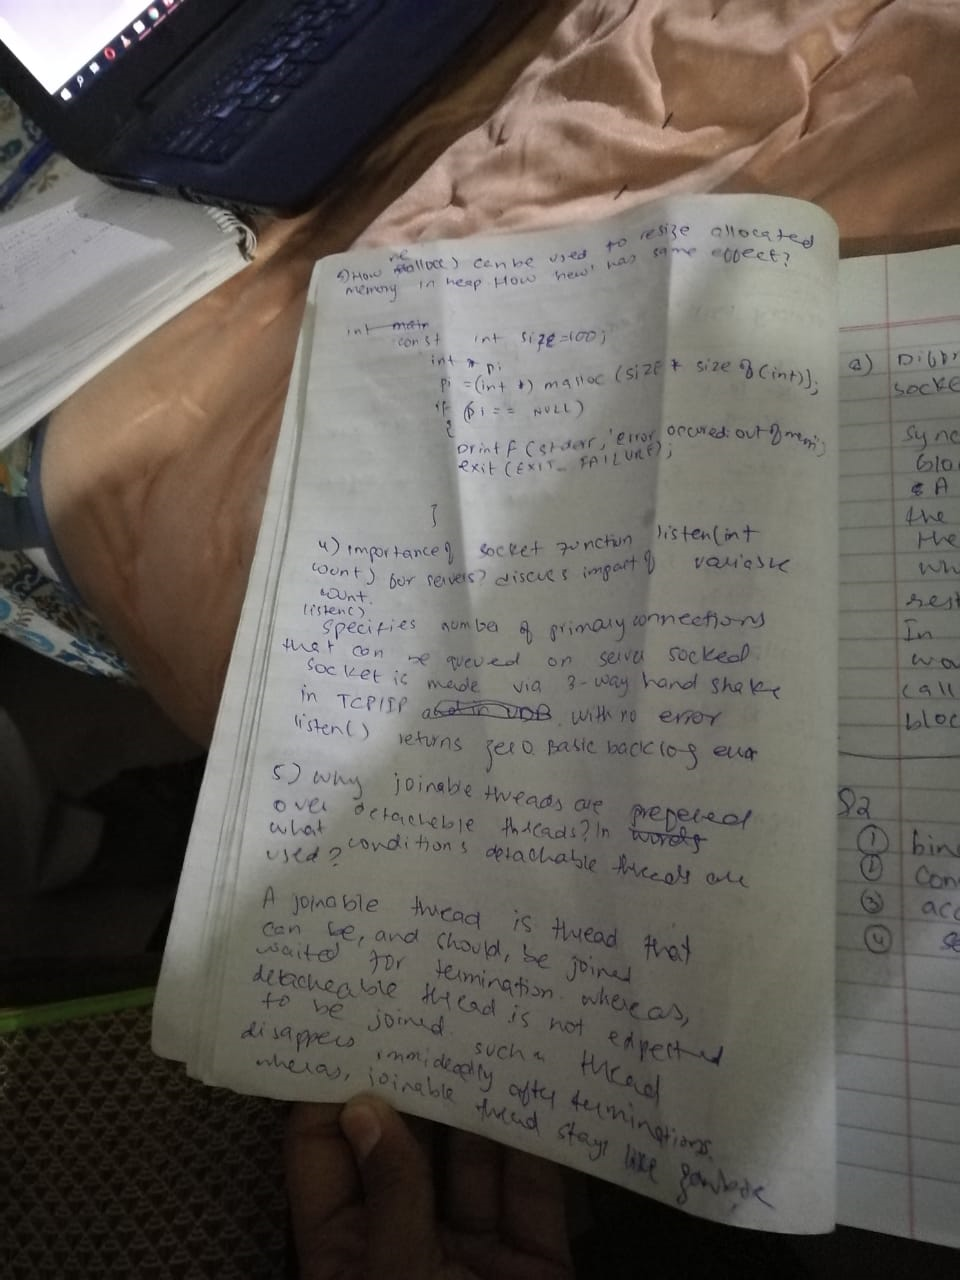 3) How realloc() can be used to resize allocated
memory in heap. How 'new' has same effect?
int main
const int size=100;
int * pi
pi =(int *) malloc (size * size of (int)];
if (pi == NULL)
{
printf (stderr, 'error occured: out of mem);
exit (EXIT_ FAILURE);
}
4) importance of socket function listen(int
count) for servers? discuss impact of variable
count.
listen()
specifies number of primary connections
that can be queued on server socked.
socket is made via 3-way hand shake
in TCP/IP and in UDB with no error
listen() returns zero. Basic backlog
5) Why joinable threads are prepered
over detacheble threads? In words
what conditions detachable threads are
used?
A joinable thread is thread that
can be, and should, be joined
waited for termination. whereas,
detacheable thread is not edpected
to be joined. such a thread
disappers immideadly after terminations.
wheras, joinable thread stays like
a)
socke
sync
blo
A
the
the
wh
rest
In
wo
call
bloc
Q2
① bin
② con
③ acc
④ se